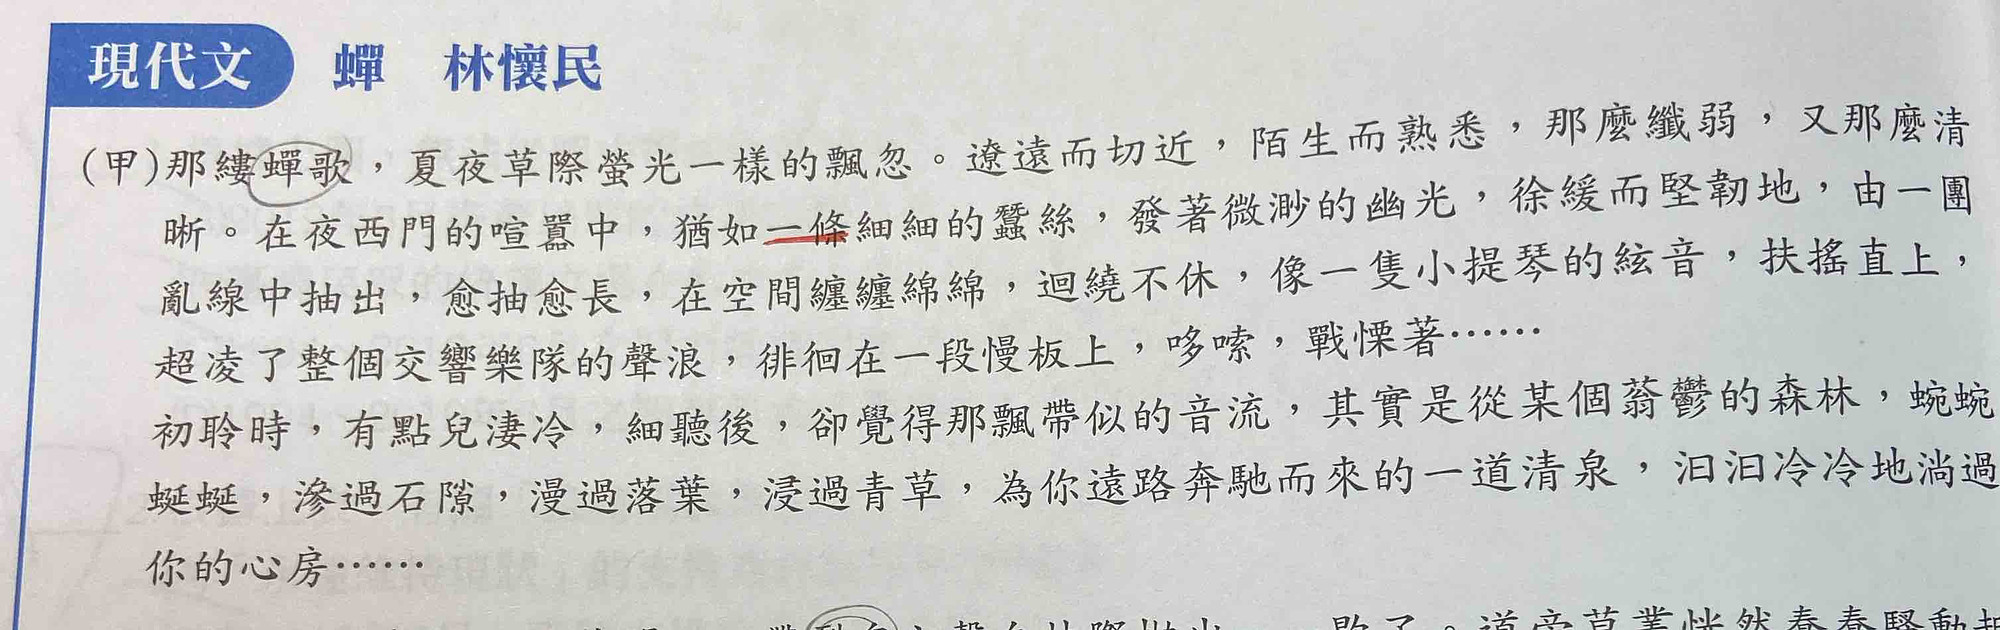 現代文 蟬 林懷民
(甲)那縷蟬歌，夏夜草際螢光一樣的飄忽。遼遠而切近，陌生而熟悉，那麼纖弱，又那麼清
晰。在夜西門的喧囂中，猶如一條細細的蠶絲，發著微渺的幽光，徐緩而堅韌地，由一團
亂線中抽出，愈抽愈長，在空間纏纏綿綿，迴繞不休，像一隻小提琴的絃音，扶搖直上，
超凌了整個交響樂隊的聲浪，徘徊在一段慢板上，哆嗦，戰慄著……
初聆時，有點兒淒冷，細聽後，卻覺得那飄帶似的音流，其實是從某個蓊鬱的森林，蜿蜿
蜒蜒，滲過石隙，漫過落葉，浸過青草，為你遠路奔馳而來的一道清泉，汩汩冷冷地淌過
你的心房……